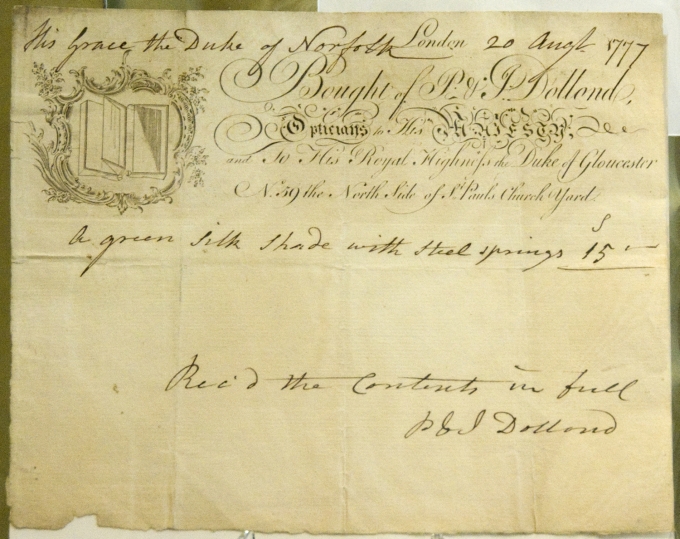 His Grace the Duke of Norfolk London 20 Augt. 1777
Bought of P. & J. Dollond,
Opticians to His MAJESTY,
and to His Royal Highness the Duke of Gloucester
No. 59 the North Side of St. Pauls Church Yard.
S
A green silk shade with steel springs 15 -
Rec'd the Contents in full
P & J Dollond